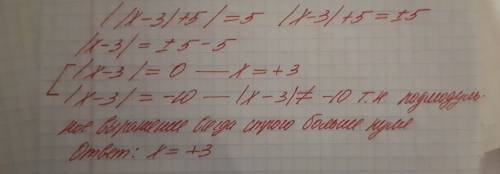 | |x-3|+5|=5   |x-3|+5=±5
|x-3|=±5-5
[ |x-3|=0 — x=+3
|x-3|=-10 — |x-3|≠-10 т.к. подмодуль-
ное выражение всегда строго больше нуля
Ответ: x=+3